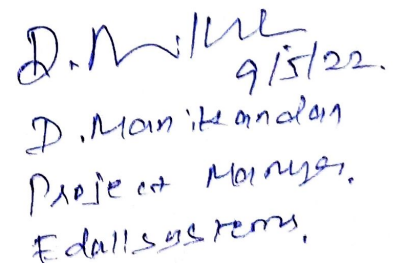 9/5/22.
D. Manikandan
Project Manager.
Edall systems.